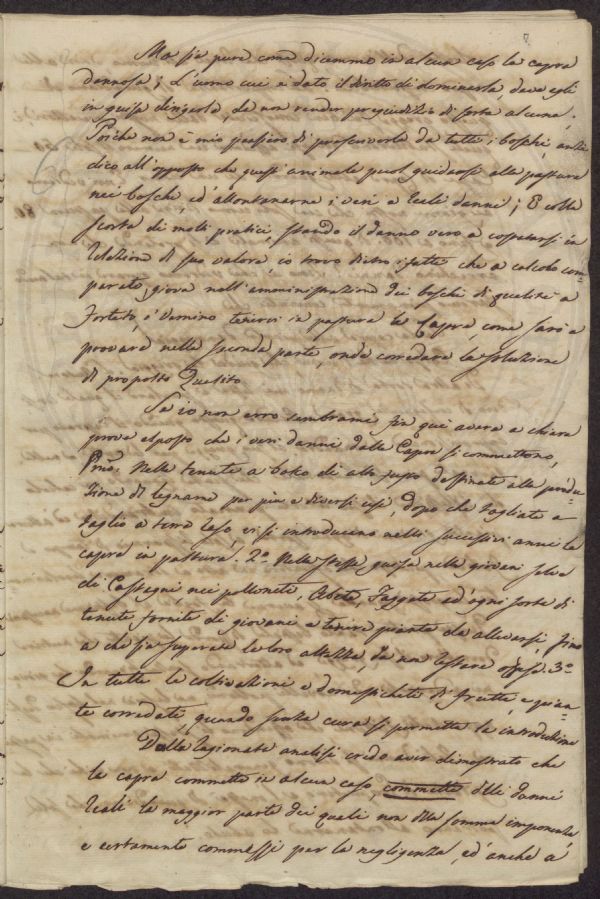 7
Ma sia pure come dicemmo in alcun caso la capra
dannosa; L'uomo cui è dato il diritto di dominarla, deve egli
in guisa dirigerla, da non render pregiudizio di sorta alcuna.
Poiche non è mio pensiero di proscriverla da tutti i boschi, anzi
dico all'opposto che questi animale puol guidarsi alla pastura
nei boschi, ed allontanarne i veri e reali danni; E colla
scorta di molti pratici, stando il danno vero a computarsi in
relazione di suo valore, io trovo dietro i fatti che a calcolo com-
parato, giova nell'amministrazione dei boschi di qualsisia
sorte tenervi in pastura le Capre, come farò a
provare nella seconda parte, onde corredare la soluzione
di proposto Quesito
Se io non erro sembrami fin qui avere a chiare
prove esposto che i veri danni dalle Capre si commettono,
Prmo. Nelle tenute a bosco di alto fusto destinate alla produ-
zione di legname per più e diversi usi, dopo che tagliate a
taglio a terra raso, vi si introducono nelli successivi anni le
capre in pastura. 2o. Nella stessa guisa nelle giovani selve
di Castagni, nei polloneti, Abeti, Faggete ed ogni sorte di
tenute fornite di giovani e tenere piante da allevarsi, fino
a che sia superata la loro altezza, da non restare offese. 3o
In tutte le coltivazioni e domestichete di frutti, e quian-
te corredate, quando senza cura si permetta la introduzione
Dalla ragionata analisi credo aver dimostrato che
la capra commette in alcun caso, commette delli danni
reali la maggior parte dei quali non della somma importanza
e certamente commessi per la negligenza, ed anche a